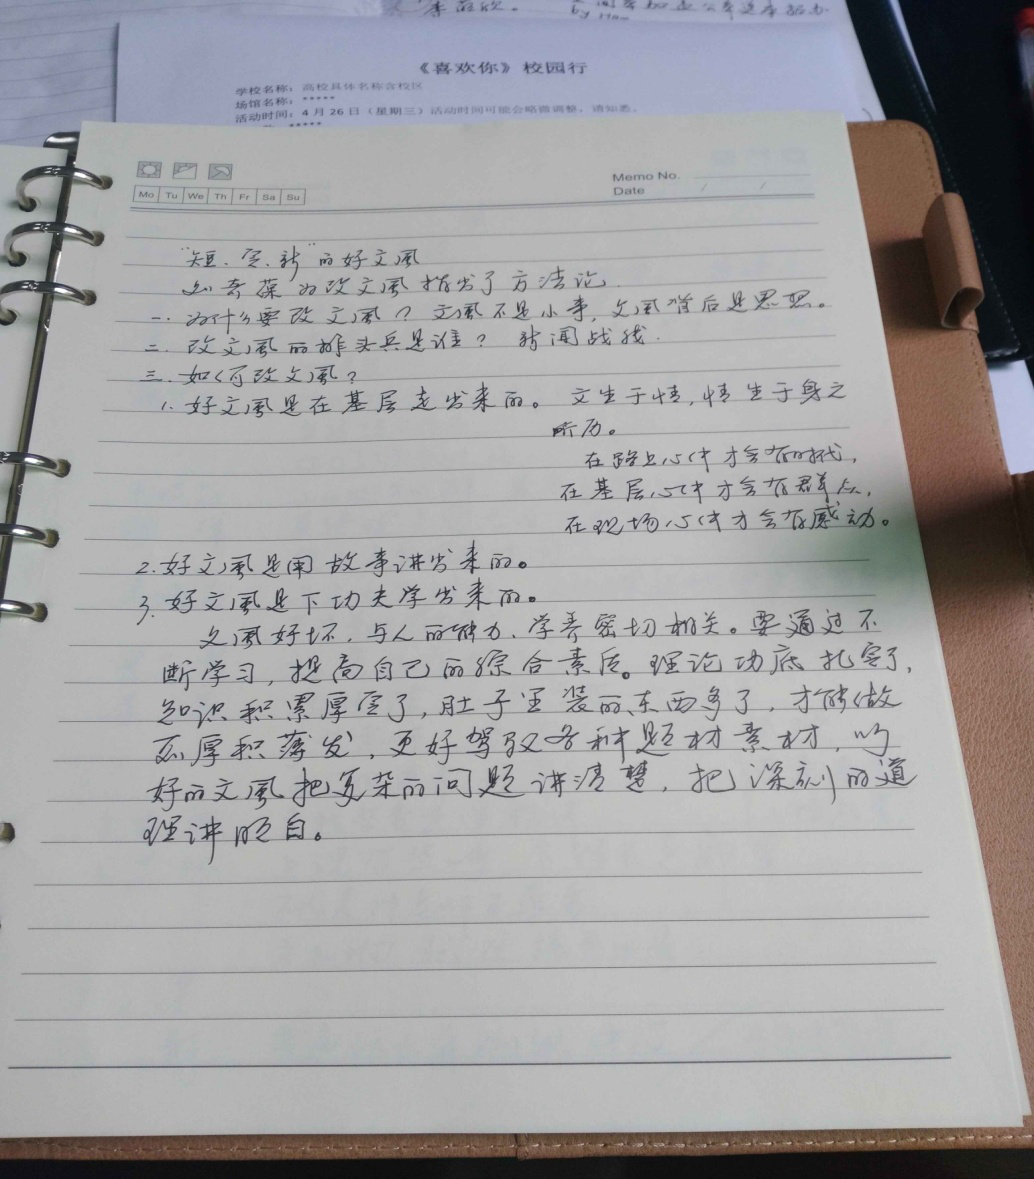 李丽欣。
by
《喜欢你》校园行
学校名称：高校具体名称含校区
场馆名称：*****
活动时间：4月26日（星期三）活动时间可能会略微调整，请知悉。
*****
Memo No.
Mo Tu We Th Fr Sa Su
Date / /
“短、实、新”的好文风
刘奇葆为改文风指出了方法论
一、为什么要改文风？文风不是小事，文风背后是思想。
二、改文风的排头兵是谁？新闻战线.
三、如何改文风？
1、好文风是在基层走出来的。文生于情，情生于身之
所历。
在路上心中才会有时代，
在基层心中才会有群众，
在现场心中才会有感动。
2.好文风是用故事讲出来的。
3.好文风是下功夫学出来的。
文风好坏，与人的能力、学养密切相关。要通过不
断学习，提高自己的综合素质。理论功底扎实了，
知识积累厚实了，肚子里装的东西多了，才能做
到厚积薄发，更好驾驭各种题材素材，以
好的文风把复杂的问题讲清楚，把深刻的道
理讲明白。